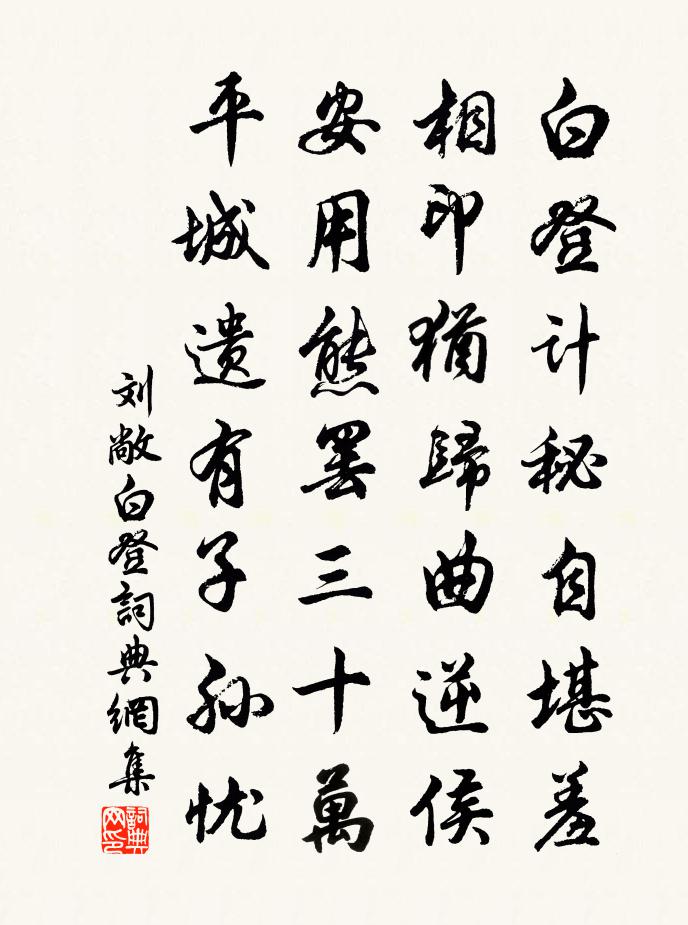 白登计秘自堪羞
相印猶歸曲逆侯
安用熊罴三十萬
平城遗有子孙忧
刘敞白登詞典網集
詞典网印